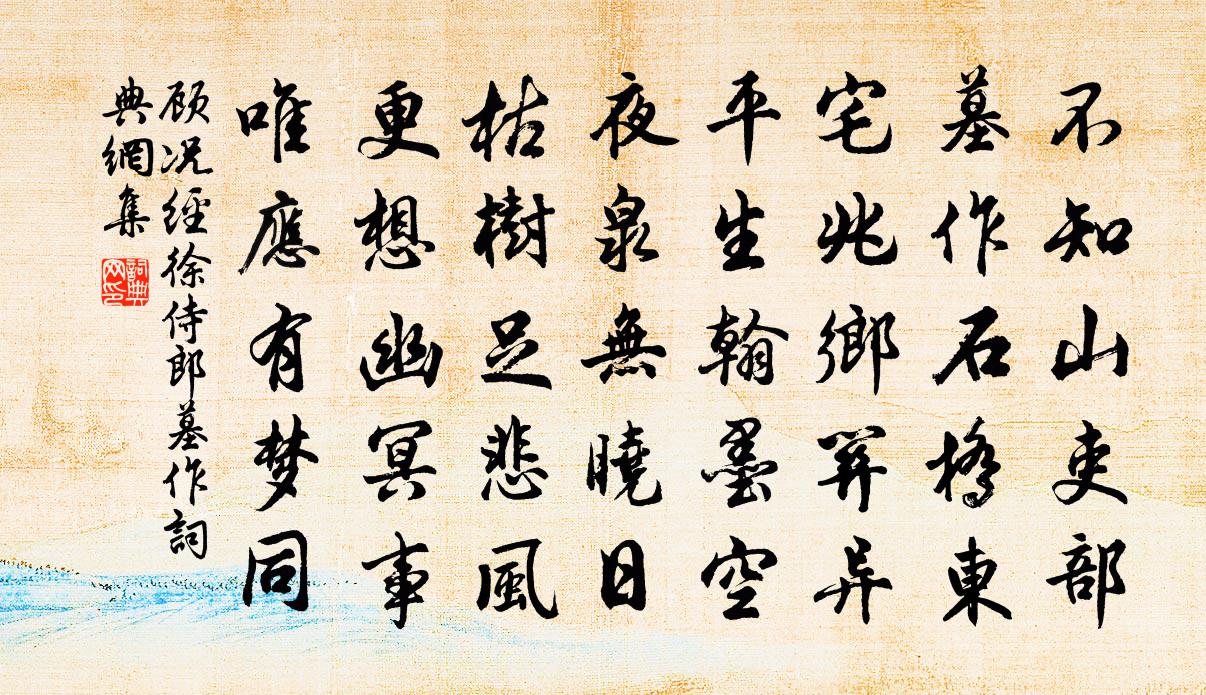 不知山吏部
墓作石橋東
宅兆鄉關异
平生翰墨空
夜泉無曉日
枯樹足悲風
更想幽冥事
唯應有梦同
顾况經徐侍郎墓作詞
典網集
詞典
网印